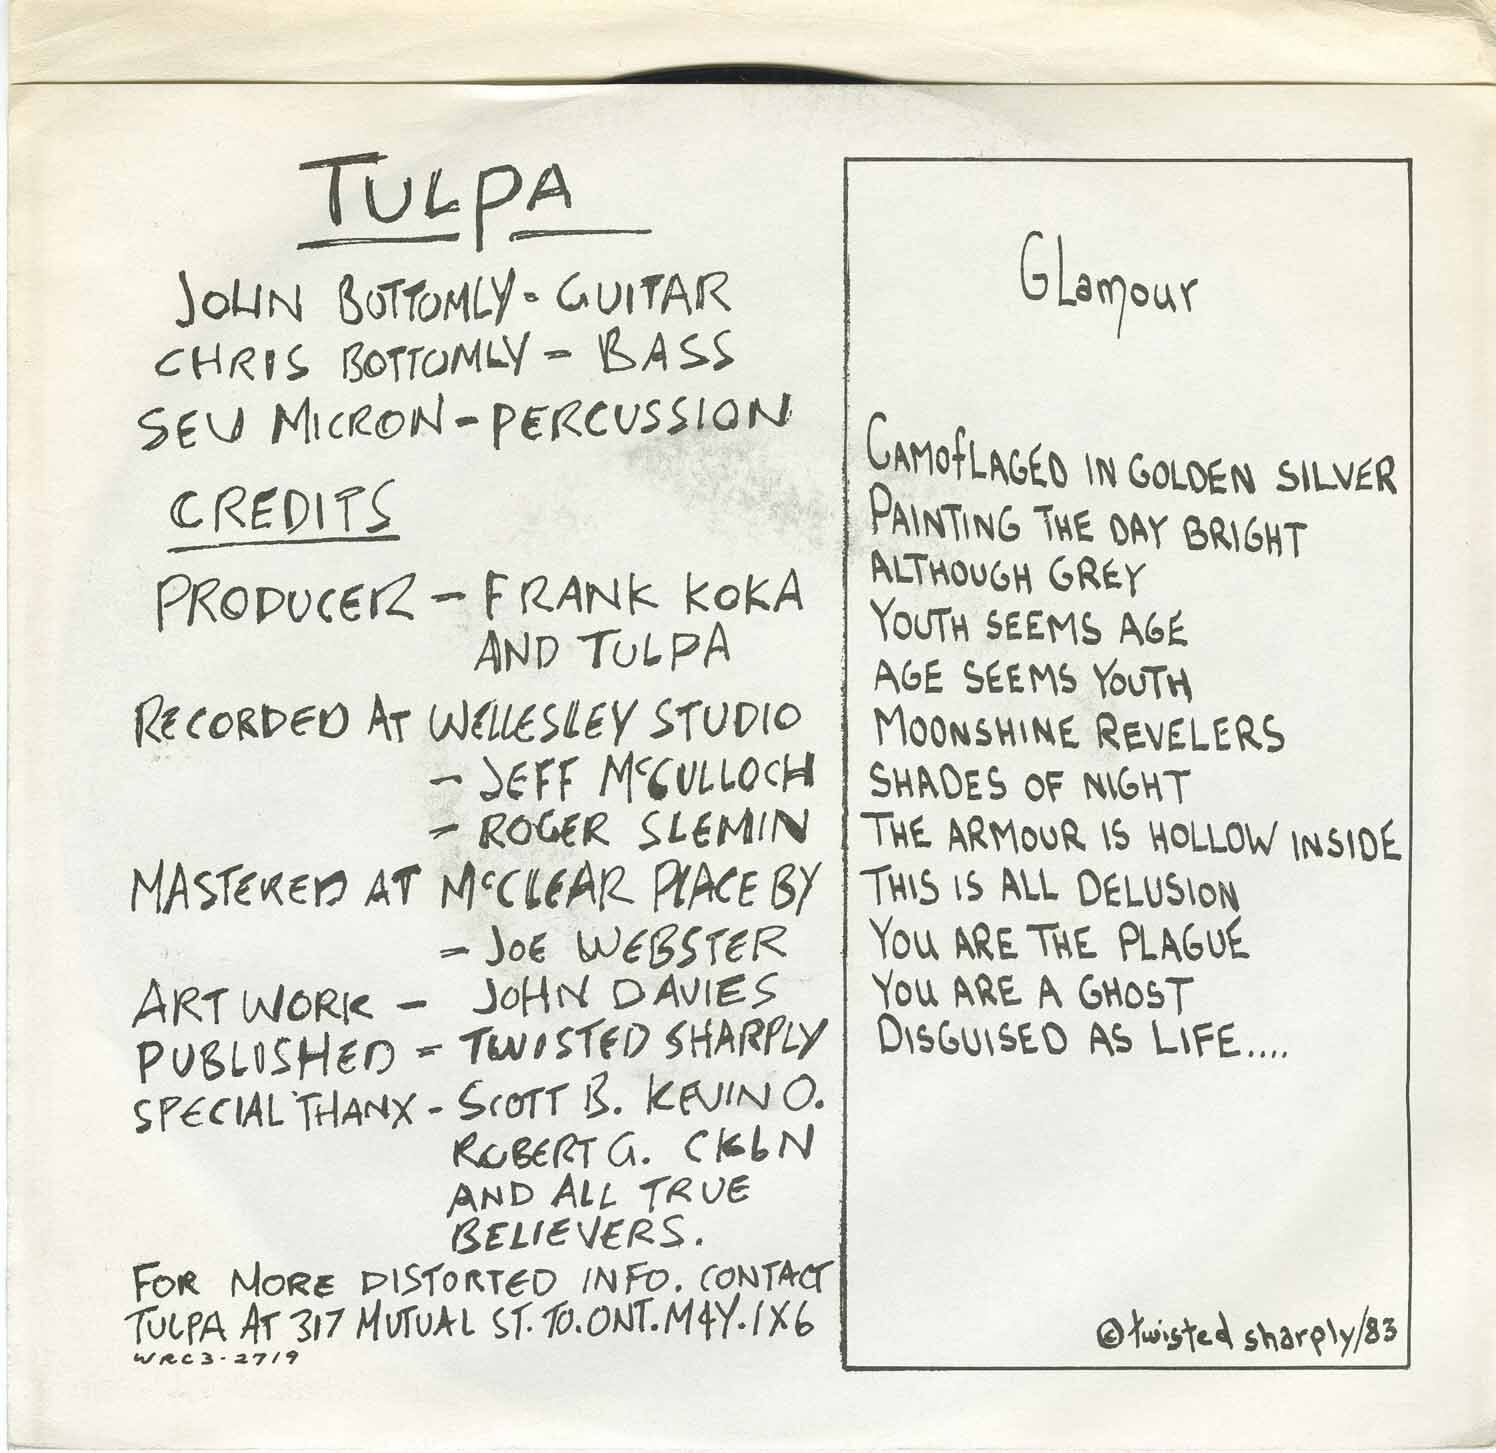 TULPA
JOHN BOTTOMLY - GUITAR
CHRIS BOTTOMLY - BASS
SEV MICRON - PERCUSSION
CREDITS
PRODUCER - FRANK KOKA
AND TULPA
RECORDED AT WELLESLEY STUDIO
- JEFF McCULLOCH
- ROGER SLEMIN
MASTERED AT McCLEAR PLACE BY
- JOE WEBSTER
ART WORK - JOHN DAVIES
PUBLISHED - TWISTED SHARPLY
SPECIAL THANX - SCOTT B. KEVIN O.
ROBERT G. CKLN
AND ALL TRUE
BELIEVERS.
FOR MORE DISTORTED INFO. CONTACT
TULPA AT 317 MUTUAL ST. TO. ONT. M4Y. 1X6
WRC3-2719
GLamour
CAMOfLAGED IN GOLDEN SILVER
PAINTING THE DAY BRIGHT
ALTHOUGH GREY
YOUTH SEEMS AGE
AGE SEEMS YOUTH
MOONSHINE REVELERS
SHADES OF NIGHT
THE ARMOUR IS HOLLOW INSIDE
THIS IS ALL DELUSION
YOU ARE THE PLAGUE
YOU ARE A GHOST
DISGUISED AS LIFE....
© twisted sharply/83